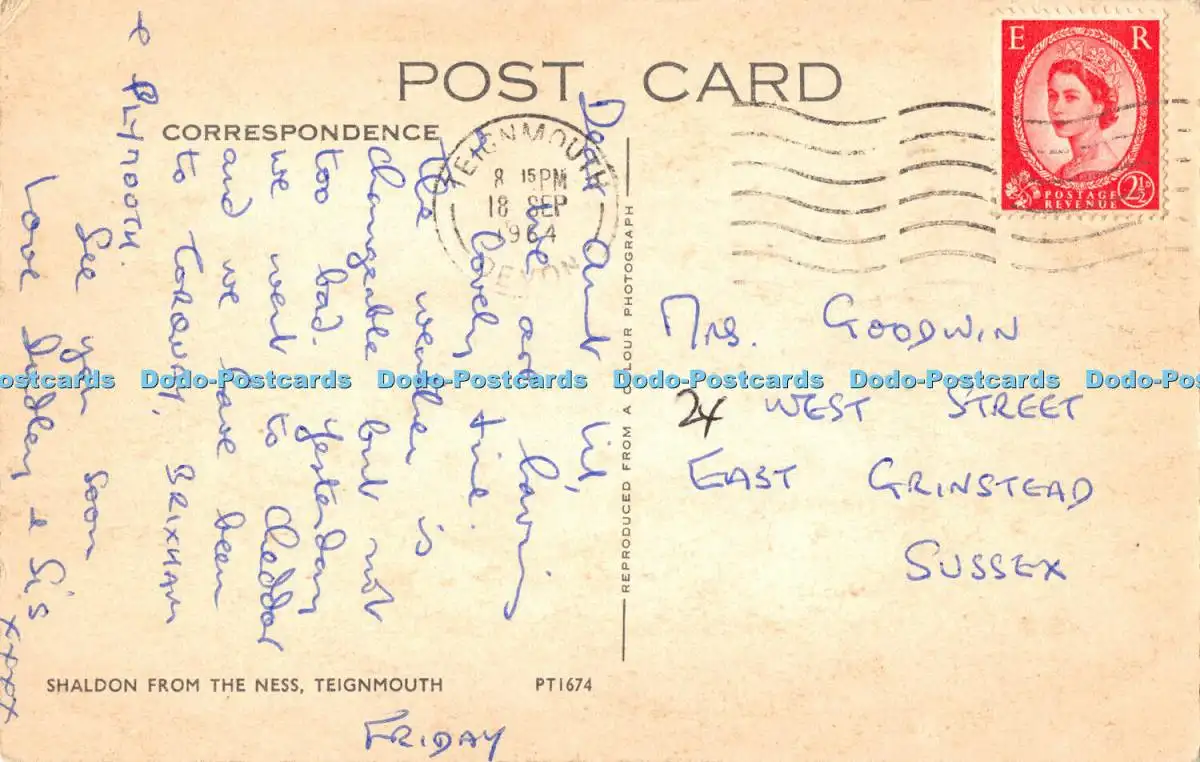 POST CARD
CORRESPONDENCE
E R
POSTAGE
REVENUE
2½D
TEIGNMOUTH
8 15PM
18 SEP
1964
DEVON
FRIDAY
Dear Aunt Lil,
We are having
a lovely time.
The weather is
changeable but not
too bad. Yesterday
we went to Cheddar
and we have been
to TORQUAY, BRIXHAM
& PLYMOUTH.
See you soon
Love Dudley & Si's
xxxx
MRS. GOODWIN
24 WEST STREET
EAST GRINSTEAD
SUSSEX
REPRODUCED FROM A COLOUR PHOTOGRAPH
SHALDON FROM THE NESS, TEIGNMOUTH PT1674
ostcards Dodo-Postcards Dodo-Postcards Dodo-Postcards Dodo-Postcards Dodo-Po